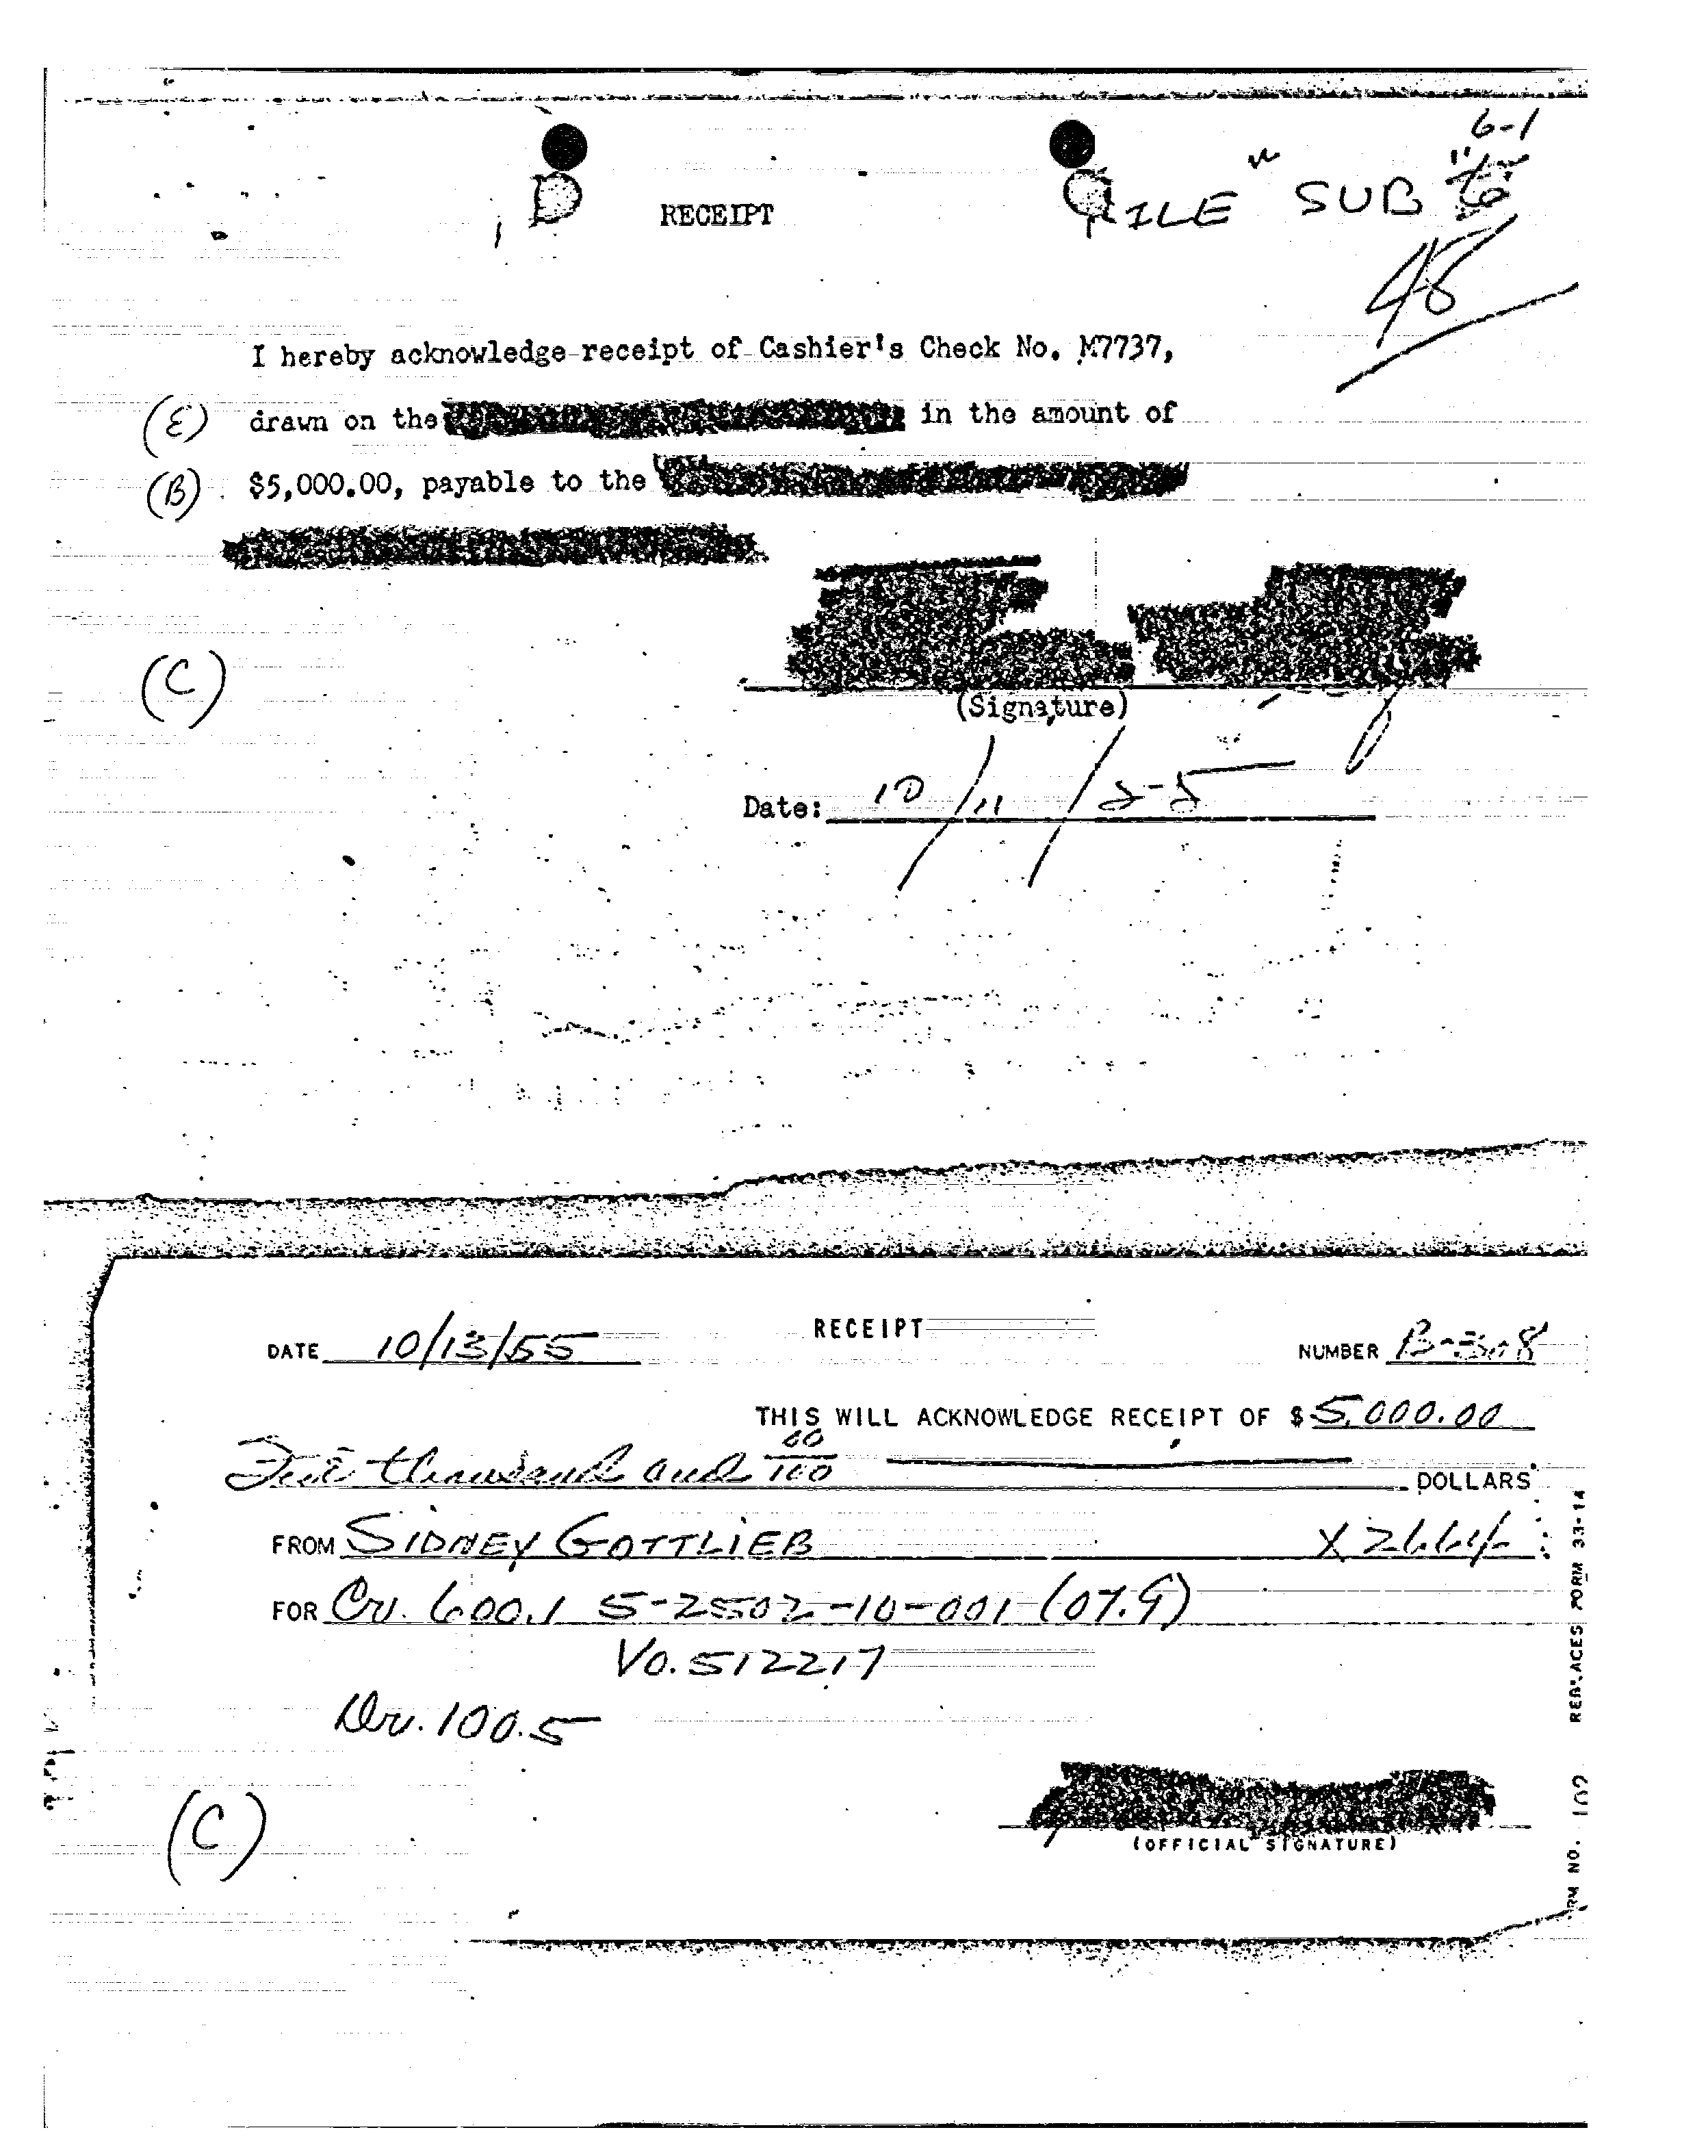 6-1
RECEIPT
FILE " SUB
48
I hereby acknowledge receipt of Cashier's Check No. M7737,
(E) drawn on the in the amount of
(B) $5,000.00, payable to the
(C)
(Signature)
Date: 10/11/55
RECEIPT
DATE 10/13/55
NUMBER B-308
THIS WILL ACKNOWLEDGE RECEIPT OF $ 5,000.00
Five thousand and 00/100 DOLLARS
FROM SIDNEY GOTTLIEB X2664
FOR Cr. 600.1 5-2502-10-001 (07.9)
Vo. 512217
Dr. 100.5
(C)
(OFFICIAL SIGNATURE)
REPLACES FORM 33-14